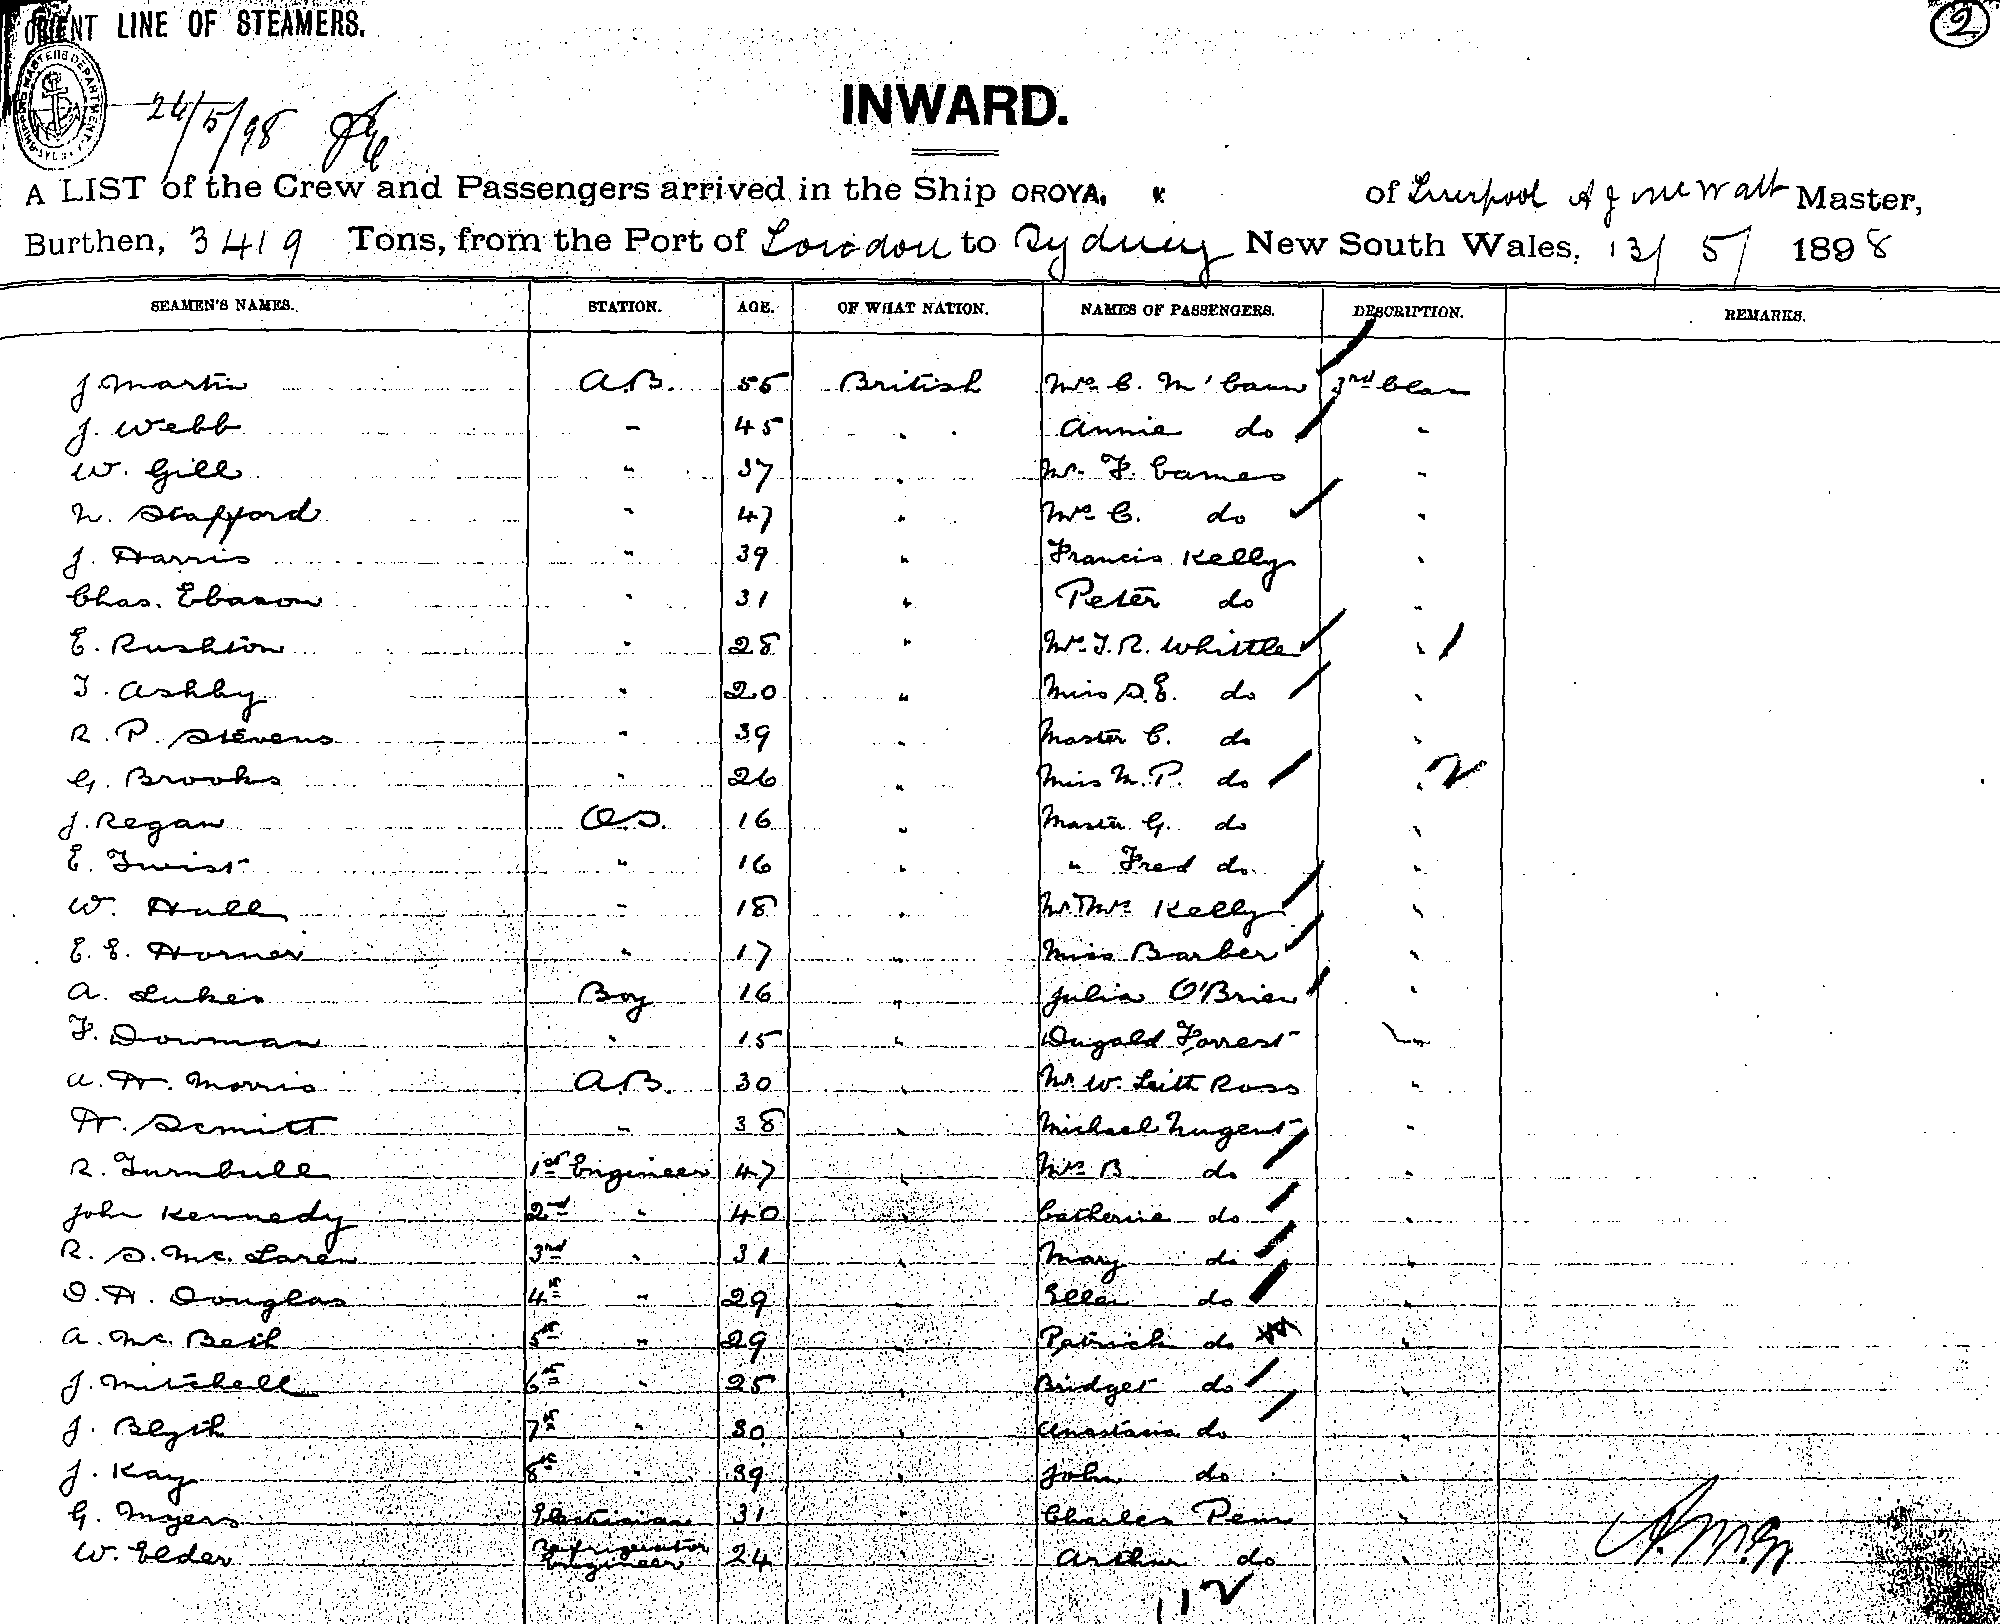 ORIENT LINE OF STEAMERS.
2
26/5/98
INWARD.
A LIST of the Crew and Passengers arrived in the Ship OROYA, of Liverpool A J McWatt Master,
Burthen, 3419 Tons, from the Port of London to Sydney New South Wales, 13/5/1898
SEAMEN'S NAMES. STATION. AGE. OF WHAT NATION. NAMES OF PASSENGERS. DESCRIPTION. REMARKS.
J Martin A.B. 55 British Mrs C. M'Cann 3rd Class
J. Webb " 45 " Annie do "
W. Gill " 37 " Mr. F. Cames "
N. Stafford " 47 " Mrs C. do "
J. Harris " 39 " Francis Kelly "
Chas. Ebason " 31 " Peter do "
E. Rushton " 28 " Mrs J. R. Whittle "
T. Ashby " 20 " Miss D.E. do "
R. P. Stevens " 39 " Master C. do "
G. Brooks " 26 " Miss M.P. do "
J. Regan O.S. 16 " Master G. do "
E. Twist " 16 " " Fred do "
W. Hull " 18 " Mr & Mrs Kelly "
E. E. Horner " 17 " Miss Barber "
A. Lukes Boy 16 " Julia O'Brien "
F. Dowman " 15 " Dugald Forrest "
A. H. Morris A.B. 30 " Mr. W. Leith Ross "
H. Semitt " 38 " Michael Nugent "
R. Turnbull 1st Engineer 47 " Mrs B do "
John Kennedy 2nd " 40 " Catherine do "
R. D. Mc. Laren 3rd " 31 " Mary do "
D. H. Douglas 4th " 29 " Ellen do "
A. Mc. Beth 5th " 29 " Patrick do "
J. Mitchell 6th " 25 " Bridget do "
J. Blyth 7th " 30 " Anastasia do "
J. Kay 8th " 39 " John do "
G. Myers Electrician 31 " Charles Penn "
W. Elder Refrigerator Engineer 24 " Arthur do "